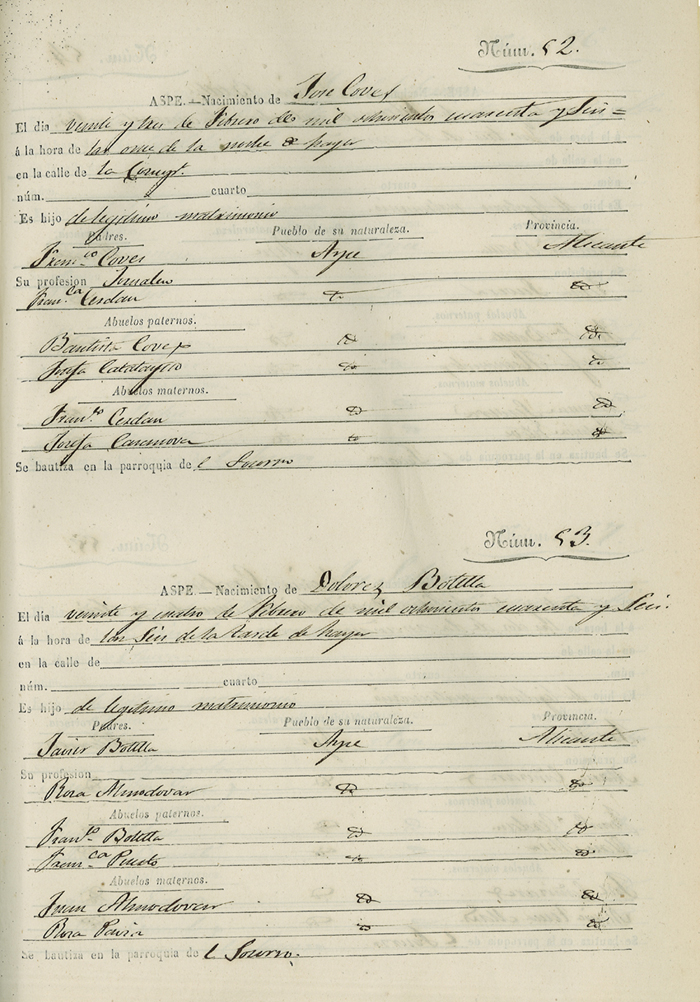 Núm. 52.
ASPE.—Nacimiento de Jose Coves
El dia veinte y tres de Febrero de mil ochocientos cuarenta y Seis
á la hora de las once de la noche de hayer
en la calle de la
núm. cuarto
Es hijo de legitimo matrimonio
Padres. Pueblo de su naturaleza. Provincia.
Fran.co Coves Aspe Alicante
Su profesion Jornalero
Fran.ca Cerdan id id
Abuelos paternos.
Bautista Coves id id
Josefa Calatayud id id
Abuelos maternos.
Fran.co Cerdan id id
Josefa Casanova id id
Se bautiza en la parroquia de l Socorro
Núm. 53.
ASPE.—Nacimiento de Dolores Botella
El dia veinte y cuatro de Febrero de mil ochocientos cuarenta y Seis.
á la hora de las Seis de la tarde de hayer
en la calle de
núm. cuarto
Es hijo de legitimo matrimonio
Padres. Pueblo de su naturaleza. Provincia.
Javier Botella Aspe Alicante
Su profesion
Rosa Almodovar id id
Abuelos paternos.
Fran.co Botella id id
Fran.ca id id
Abuelos maternos.
Juan Almodovar id id
Rosa id id
Se bautiza en la parroquia de l Socorro.